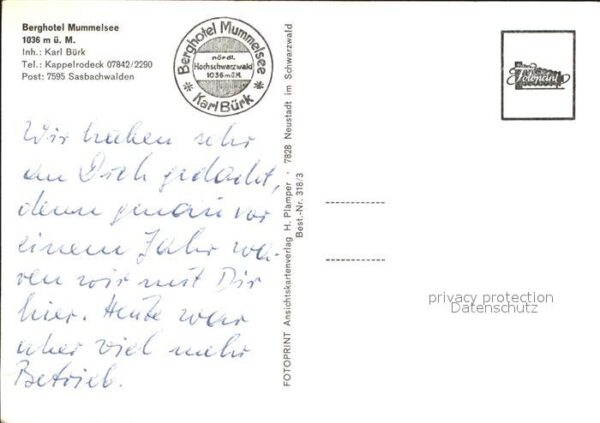 Berghotel Mummelsee
1036 m ü. M.
Inh.: Karl Bürk
Tel.: Kappelrodeck 07842/2290
Post: 7595 Sasbachwalden
Berghotel Mummelsee
nördl.
Hochschwarzwald
1036 m ü.M.
Karl Bürk
Wir haben sehr
an Dich gedacht,
denn genau vor
einem Jahr wa-
ren wir mit Dir
hier. Heute war
aber viel mehr
Betrieb.
FOTOPRINT Ansichtskartenverlag H. Plamper · 7828 Neustadt im Schwarzwald
Best.-Nr. 318/3
Fotoprint
privacy protection
Datenschutz